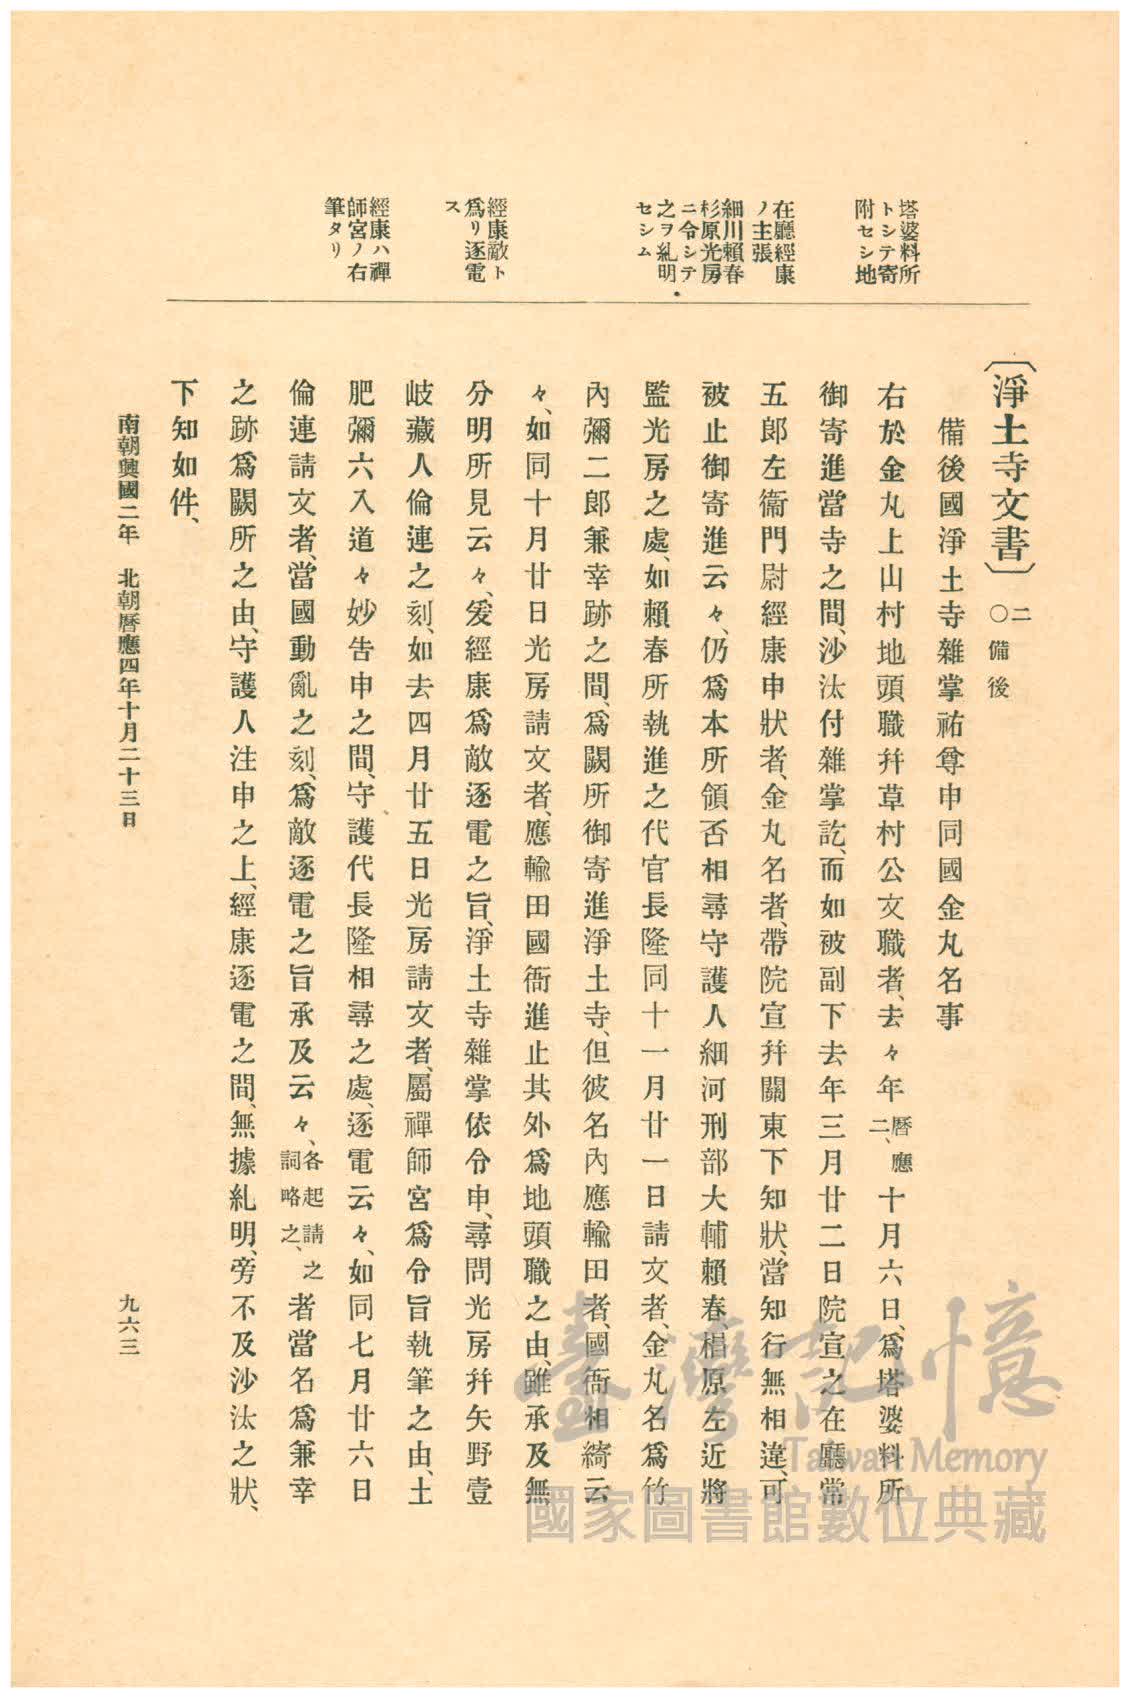 塔婆料所
トシテ寄
附セシ地
在廳經康
ノ主張
細川賴春
杉原光房
ニ令シテ
之ヲ糺明
セシム
經康敵ト
爲リ逐電
ス
經康ハ禪
師宮ノ右
筆タリ
〔淨土寺文書〕二〇備後
備後國淨土寺雜掌祐尊申同國金丸名事
右於金丸上山村地頭職幷草村公文職者、去々年曆應二、十月六日、爲塔婆料所
御寄進當寺之間、沙汰付雜掌訖、而如被副下去年三月廿二日院宣之在廳常
五郎左衞門尉經康申狀者、金丸名者、帶院宣幷關東下知狀、當知行無相違、可
被止御寄進云々、仍爲本所領否相尋守護人細河刑部大輔賴春、椙原左近將
監光房之處、如賴春所執進之代官長隆同十一月廿一日請文者、金丸名爲竹
內彌二郎兼幸跡之間、爲闕所御寄進淨土寺、但彼名內應輸田者、國衙相綺云
々、如同十月廿日光房請文者、應輸田國衙進止其外爲地頭職之由、雖承及無
分明所見云々、爰經康爲敵逐電之旨、淨土寺雜掌依令申、尋問光房幷矢野壹
岐藏人倫連之刻、如去四月廿五日光房請文者、屬禪師宮爲令旨執筆之由、土
肥彌六入道々妙告申之間、守護代長隆相尋之處、逐電云々、如同七月廿六日
倫連請文者、當國動亂之刻、爲敵逐電之旨承及云々、各起請之詞略之、者當名爲兼幸
之跡爲闕所之由、守護人注申之上、經康逐電之間、無據糺明、旁不及沙汰之狀、
下知如件、
南朝興國二年 北朝曆應四年十月二十三日
九六三
臺灣記憶
Taiwan Memory
國家圖書館數位典藏